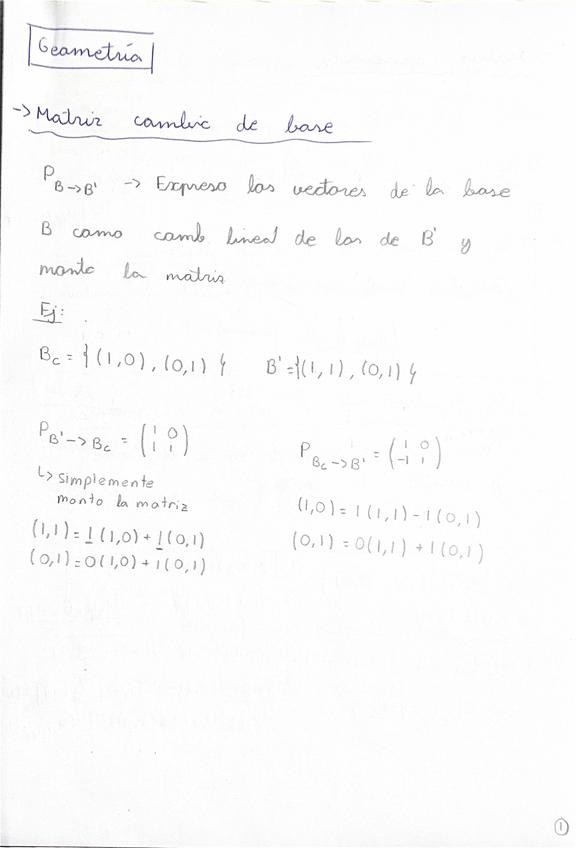 Geometría
-> Matriz cambio de base
P B->B' -> Expreso los vectores de la base
B como comb lineal de los de B' y
monto la matriz
Ej:
Bc = {(1,0), (0,1)} B' = {(1,1), (0,1)}
P B'->Bc = (1 0
1 1)
↳ simplemente
monto la matriz
(1,1) = 1(1,0) + 1(0,1)
(0,1) = 0(1,0) + 1(0,1)
P Bc->B' = (1 0
-1 1)
(1,0) = 1(1,1) - 1(0,1)
(0,1) = 0(1,1) + 1(0,1)
1